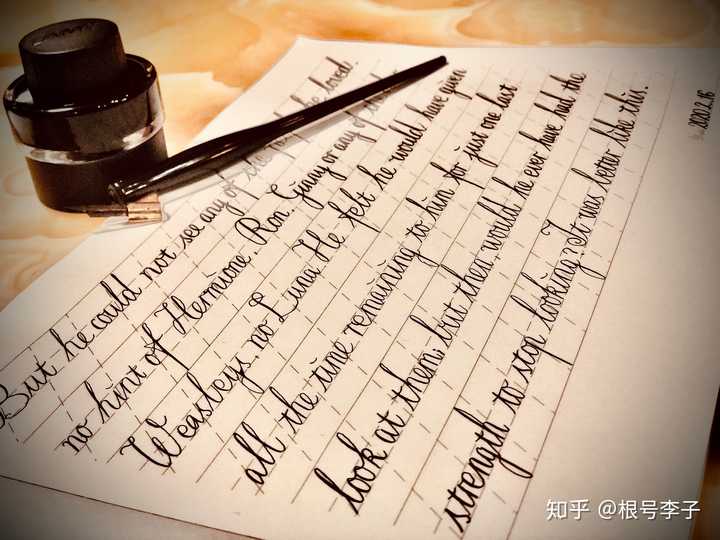 But he could not see any of the people he loved.
no hint of Hermione, Ron, Ginny or any of the other
Weasleys, no Luna. He felt he would have given
all the time remaining to him for just one last
look at them, but then, would he ever have had the
strength to stop looking? It was better like this.
2020.2.16
知乎 @根号李子